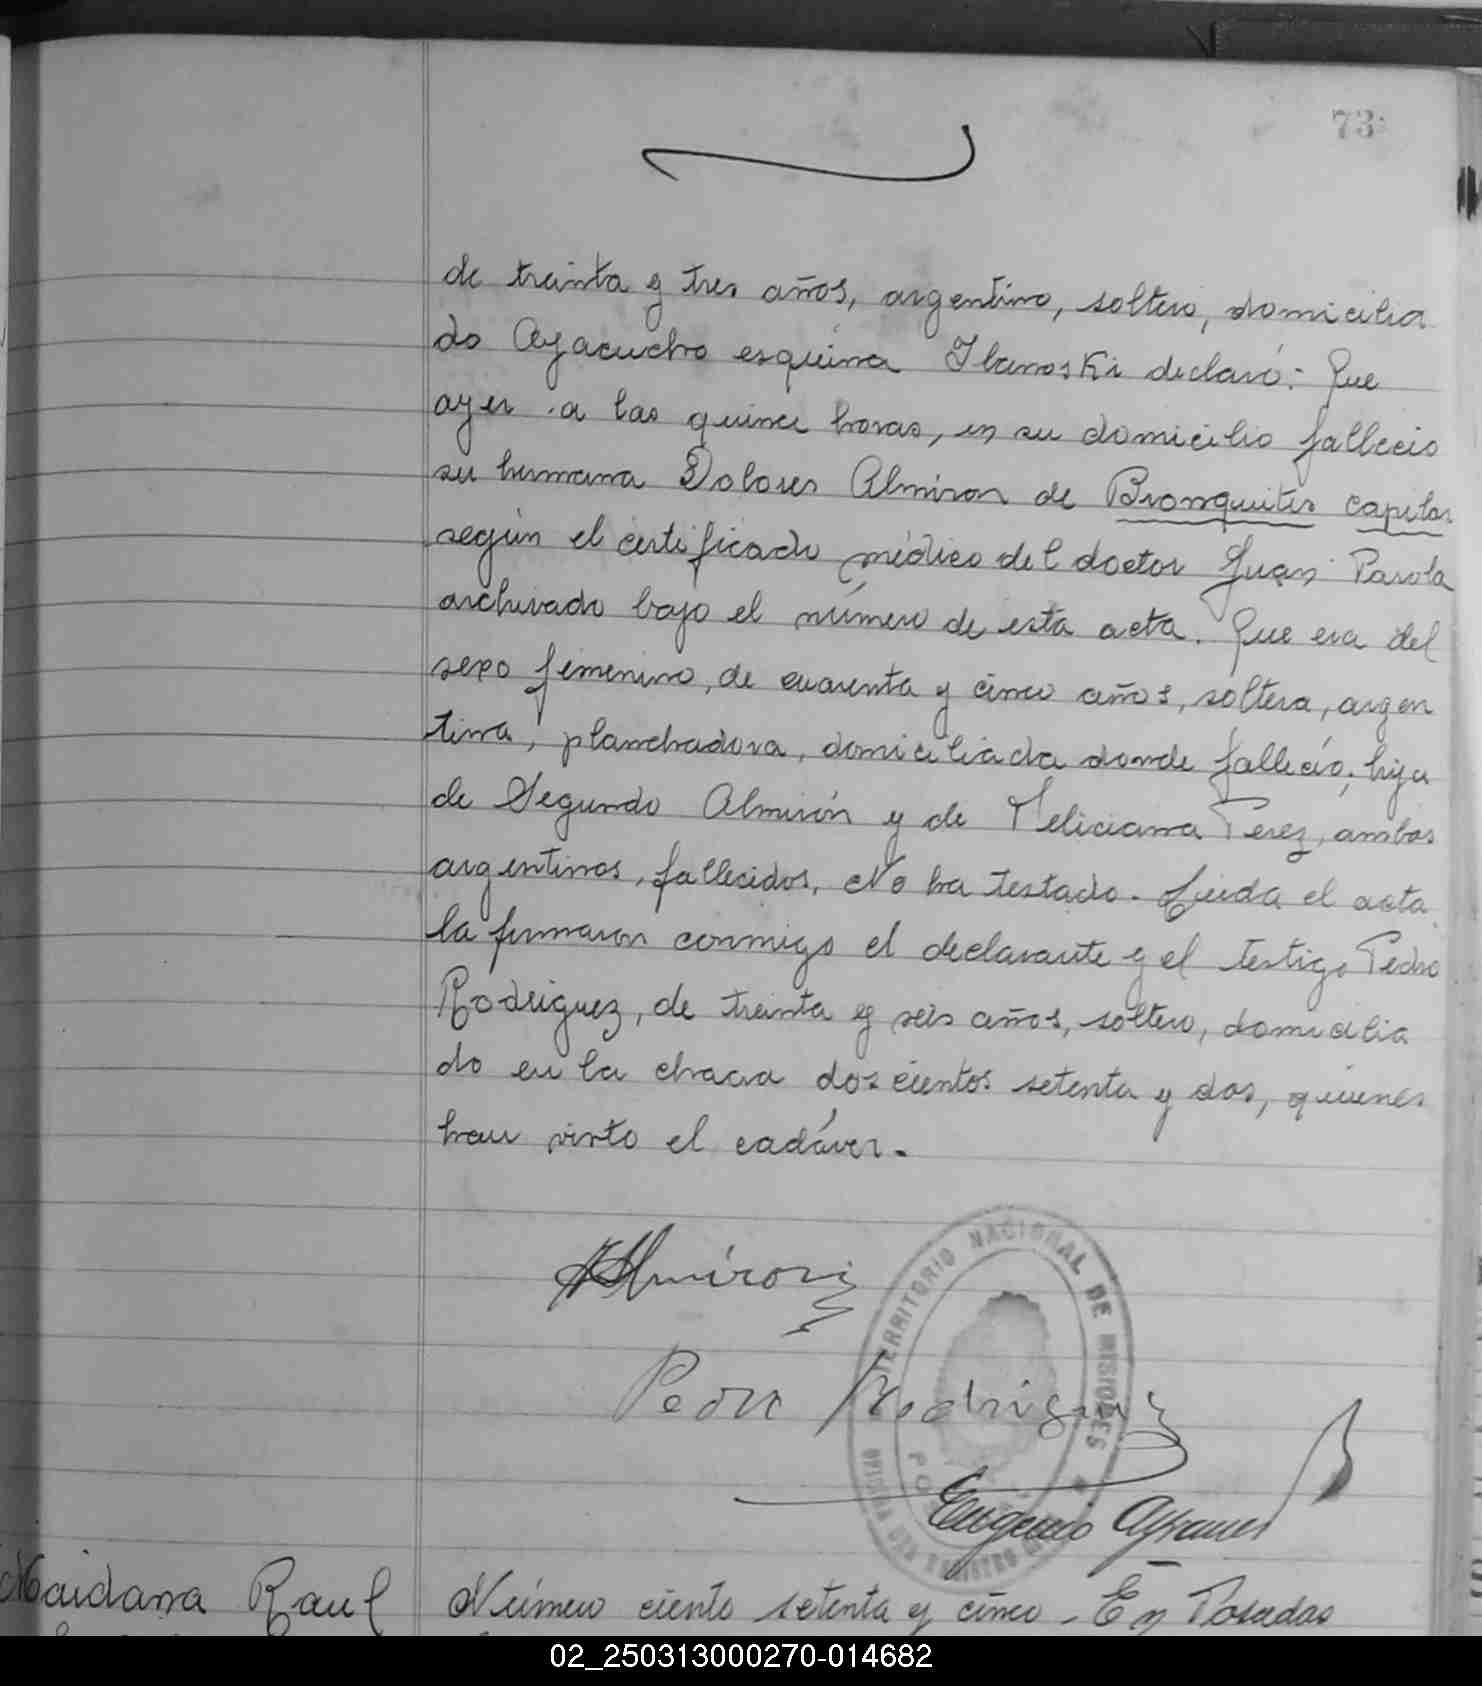 73
de treinta y tres años, argentino, soltero, domicilia
do Ayacucho esquina Ibanoski declaró: Que
ayer a las quince horas, en su domicilio fallecio
su hermana Dolores Almiron de Bronquitis capilar
según el certificado médico del doctor Juan Parola
archivado bajo el número de esta acta. Que era del
sexo femenino, de cuarenta y cinco años, soltera, argen
tina, planchadora, domiciliada donde falleció, hija
de Segundo Almirón y de Feliciana Perez, ambos
argentinos, fallecidos. No ha testado. Leida el acta
la firmaron conmigo el declarante y el testigo Pedro
Rodriguez, de treinta y seis años, soltero, domicilia
do en la chacra doscientos setenta y dos, quienes
han visto el cadáver.
Almiron
TERRITORIO NACIONAL DE MISIONES
Pedro Rodriguez
Eugenio
Maidana Raul
Número ciento setenta y cinco. En Posadas
02_250313000270-014682